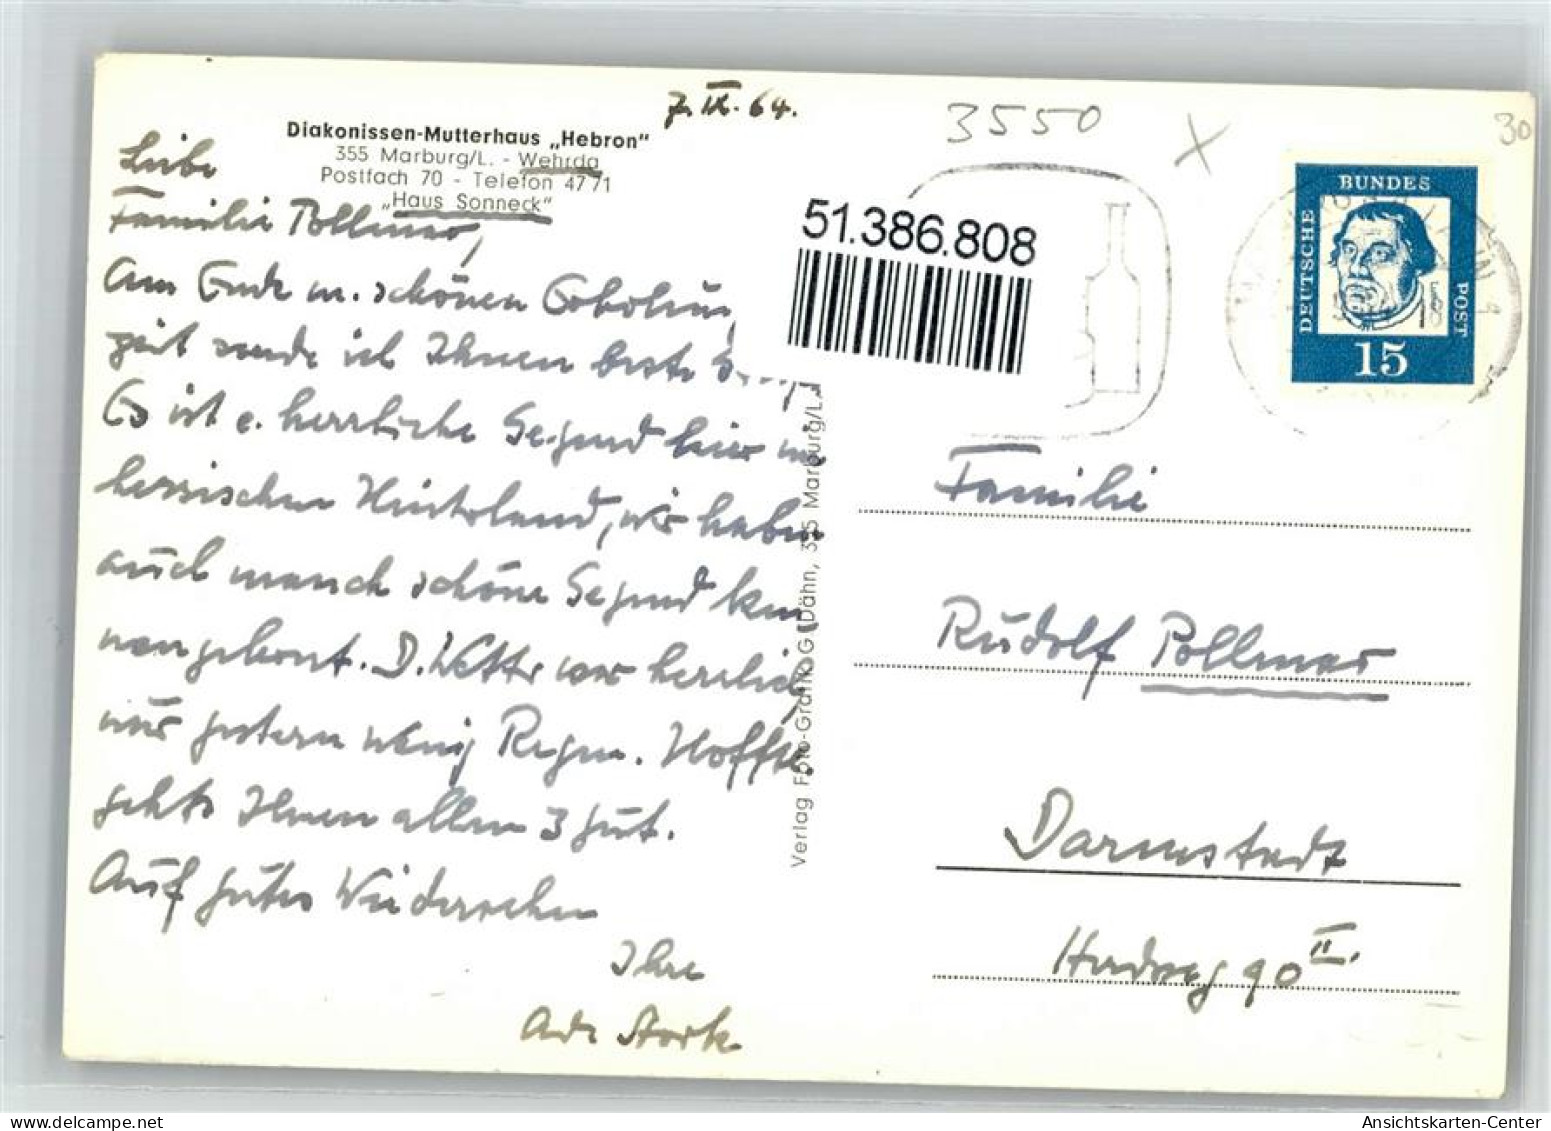 7. IX. 64.
Diakonissen-Mutterhaus „Hebron"
355 Marburg/L. - Wehrda
Postfach 70 - Telefon 47 71
„Haus Sonneck"
Liebe
Familie Pollmer,
Am Ende m. schönen Erholung
zeit sende ich Ihnen beste
Es ist e. herrliche Gegend hier im
hessischen Hinterland, wir haben
auch manch schöne Gegend ken
nengelernt. D. Wetter war herrlich,
nur gestern wenig Regen. Hoffte,
gehts Ihnen allen 3 gut.
Auf gutes Wiedersehen
Ihre
Verlag Foto-Grafik OG Dähn, 355 Marburg/L.
3550
X
30
51.386.808
DEUTSCHE
BUNDES
POST
15
Familie
Rudolf Pollmer
Darmstadt
90 II.
Ansichtskarten-Center